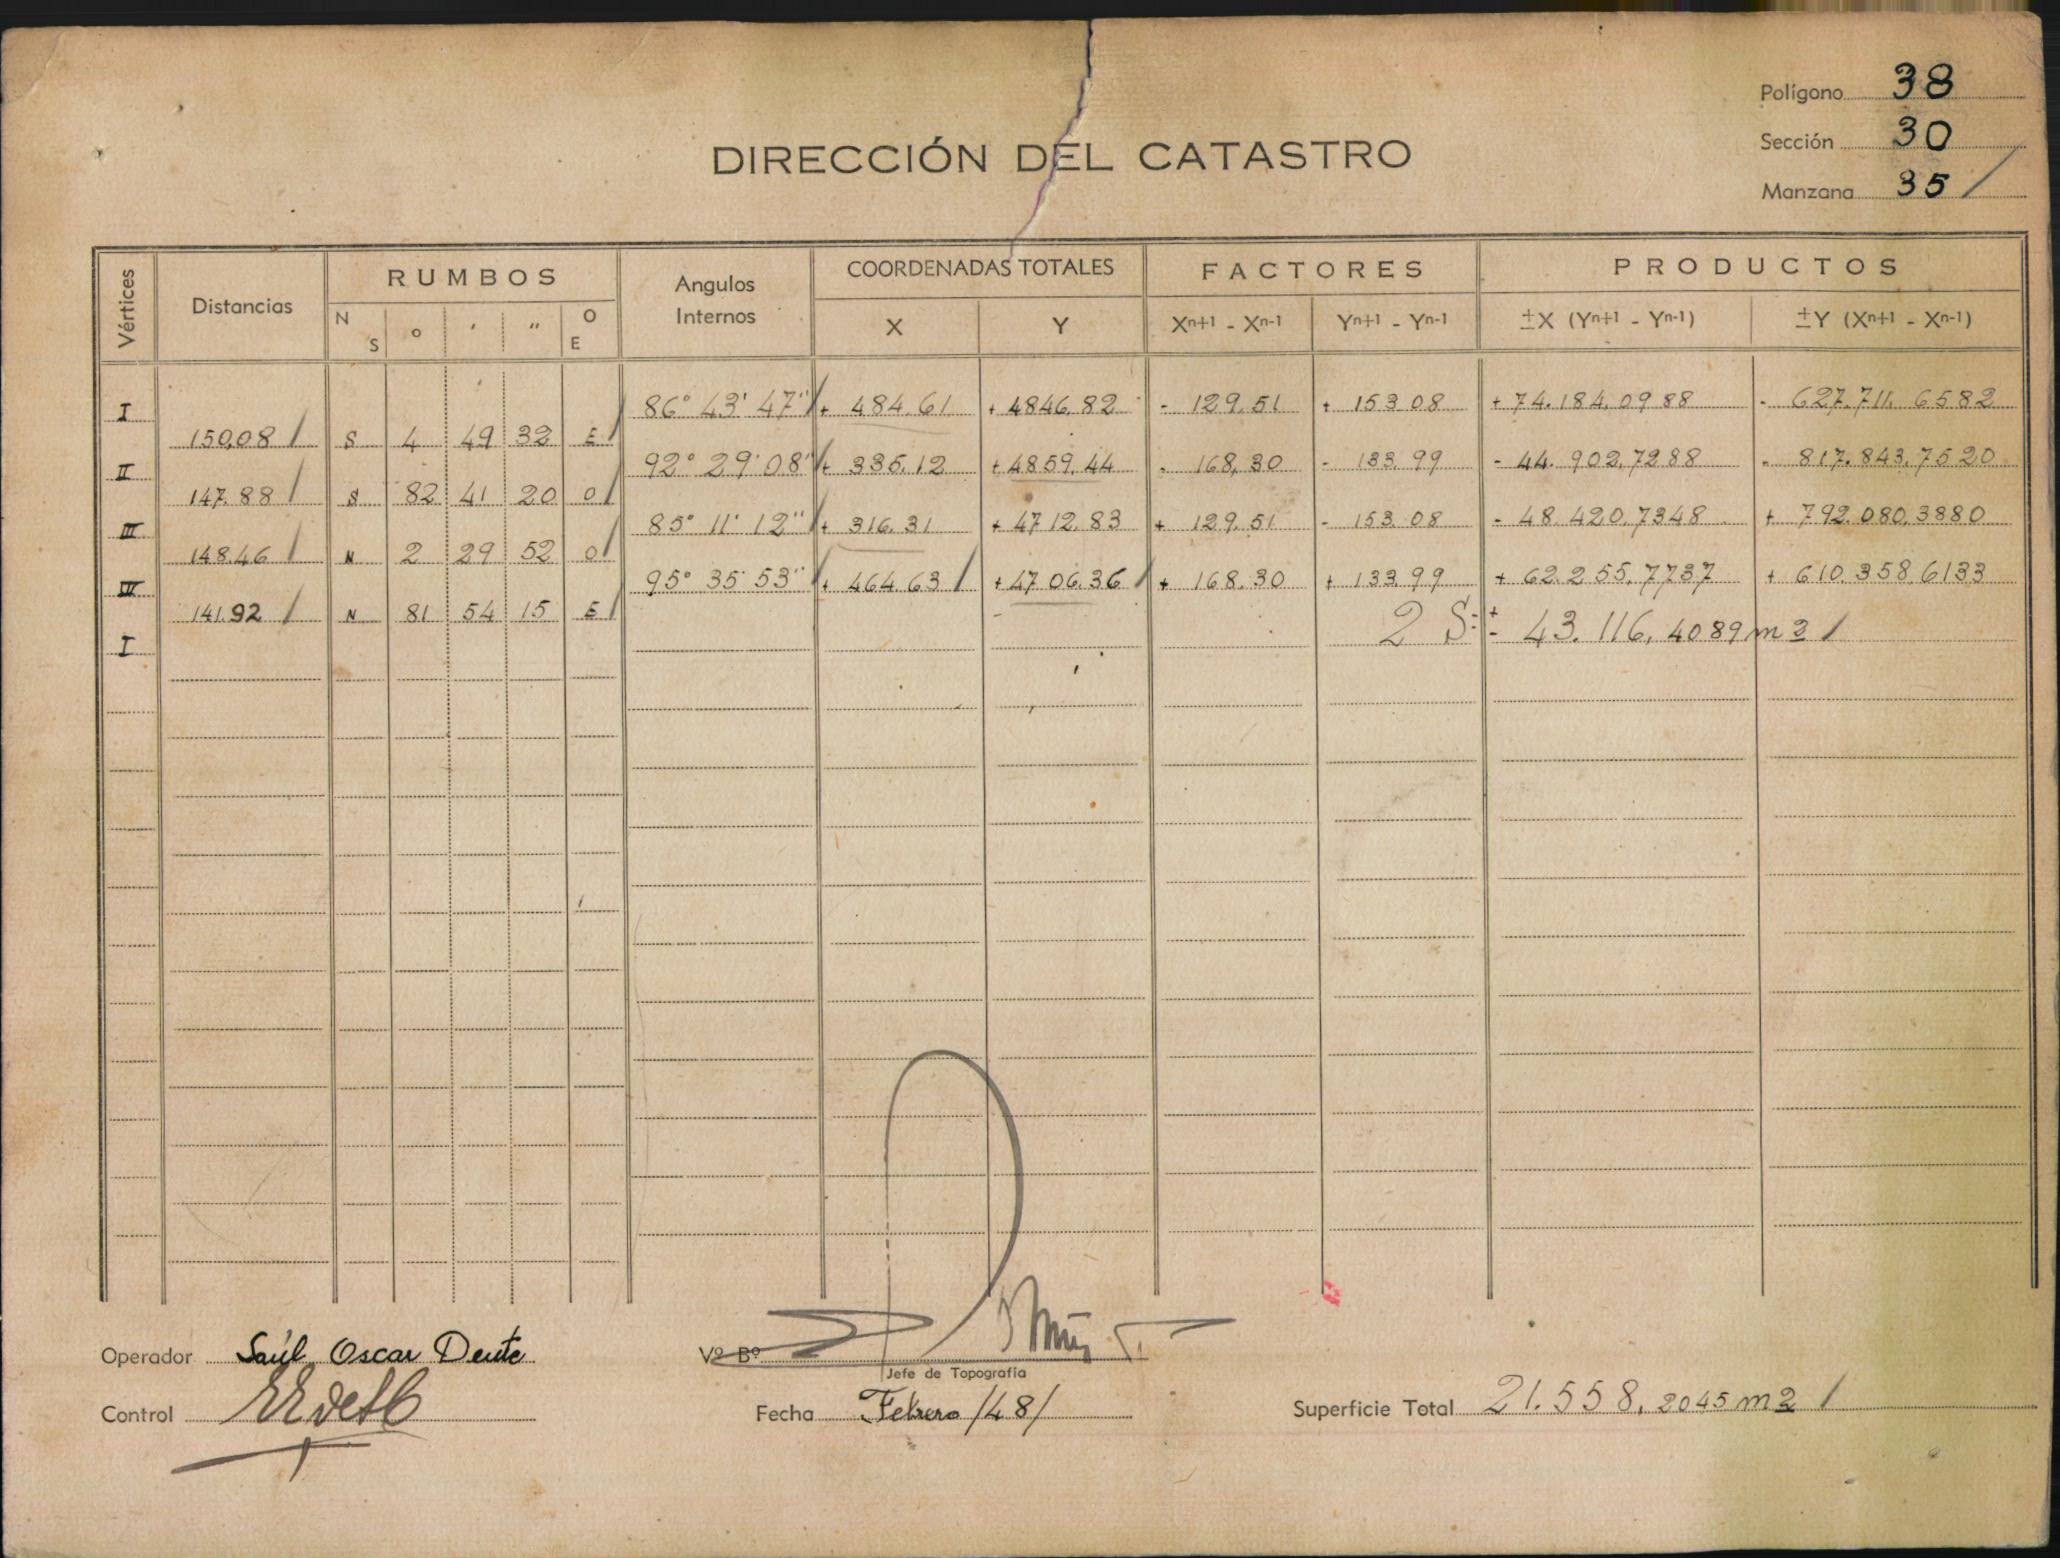 Polígono 38
DIRECCIÓN DEL CATASTRO
Sección 30
Manzana 35 /
Vértices Distancias RUMBOS Angulos Internos COORDENADAS TOTALES FACTORES PRODUCTOS
N S ° ' " O E X Y Xn+1 - Xn-1 Yn+1 - Yn-1 ±X (Yn+1 - Yn-1) ±Y (Xn+1 - Xn-1)
I 86° 43' 47" / + 484.61 + 4846.82 - 129.51 + 153 08 + 74.184.0988 - 627.711.6582
150,08 / S 4 49 32 E /
II 92° 29' 08" / + 335.12 + 4859.44 - 168,30 - 133 99 - 44.902,7288 - 817.843,7520
147.88 / S 82 41 20 O /
III 85° 11' 12" / + 316.31 + 4712.83 + 129.51 - 153 08 - 48.420.7348 + 792.080,3880
148.46 / N 2 29 52 O /
IV 95° 35' 53" / + 464.63 / + 4706.36 / + 168.30 + 133 99 + 62.255,7737 + 610.358,6133
141.92 / N 81 54 15 E /
I 2 S = ± 43.116,4089 m2 /
Operador Saúl Oscar Dente
Vº Bº
Jefe de Topografía
Control
Fecha Febrero /48/
Superficie Total 21.558,2045 m2 /